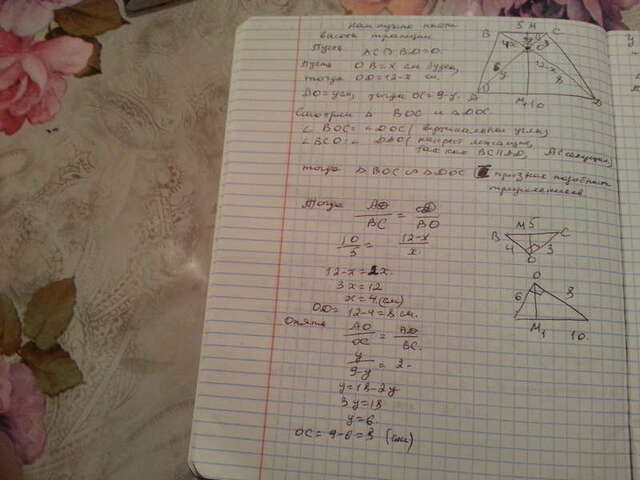 нам нужно найти
высоту трапеции.
Пусть AC ∩ BD = O.
Пусть OB = x см. будет,
тогда OD = 12-x см.
AO = y см, тогда OC = 9-y.
смотрим △ BOC и
∠ BOC = (вертикальные углы)
∠ BCO = накрест лежащие,
так как BC || AD, AC секущая
тогда △ BOC ∞ признак подобия
треугольников
Тогда AD/BC = OD/BO
10/5 = 12-x/x
12-x = 2x.
3x = 12
x = 4 (см)
OD = 12-4 = 8 см.
AO/OC = AD/BC.
y/9-y = 2.
y = 18-2y
3y = 18
y = 6.
OC = 9-6 = 3 (см)
B 5 M C
4 O
6 y 12-x 8
A M₁ 10 D
B M 5 C
4 3
O
O
6 8
M₁ 10